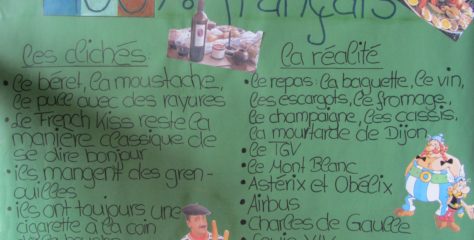 100% français
les clichés
• le béret, la moustache,
le pull avec des rayures
• le French Kiss reste la
manière classique de
se dire bonjour
• ils mangent des gren-
ouilles
• ils ont toujours une
cigarette à la coin
la réalité
• le repas: la baguette, le vin,
les escargots, le fromage,
le champagne, les cassis,
la mourtarde de Dijon
• le TGV
• le Mont Blanc
• Astérix et Obélix
• Airbus
• Charles de Gaulle
• Louis XIV